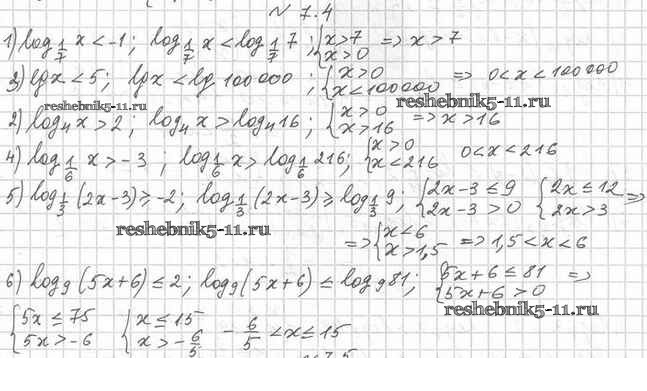 № 7.4
1) log_{1/7} x < -1; log_{1/7} x < log_{1/7} 7; { x > 7 x > 0 => x > 7
3) lg x < 5; lg x < lg 100000; { x > 0 x < 100000 => 0 < x < 100000
reshebnik5-11.ru reshebnik5-11.ru
2) log_4 x > 2; log_4 x > log_4 16; { x > 0 x > 16 => x > 16
4) log_{1/6} x > -3; log_{1/6} x > log_{1/6} 216; { x > 0 x < 216 0 < x < 216
5) log_{1/3} (2x-3) ≥ -2; log_{1/3} (2x-3) ≥ log_{1/3} 9; { 2x-3 ≤ 9 2x-3 > 0 { 2x ≤ 12 2x > 3 =>
reshebnik5-11.ru
=> { x < 6 x > 1,5 => 1,5 < x < 6
6) log_9 (5x+6) ≤ 2; log_9 (5x+6) ≤ log_9 81; { 5x+6 ≤ 81 5x+6 > 0 =>
reshebnik5-11.ru
{ 5x ≤ 75 5x > -6 { x ≤ 15 x > -6/5 -6/5 < x ≤ 15